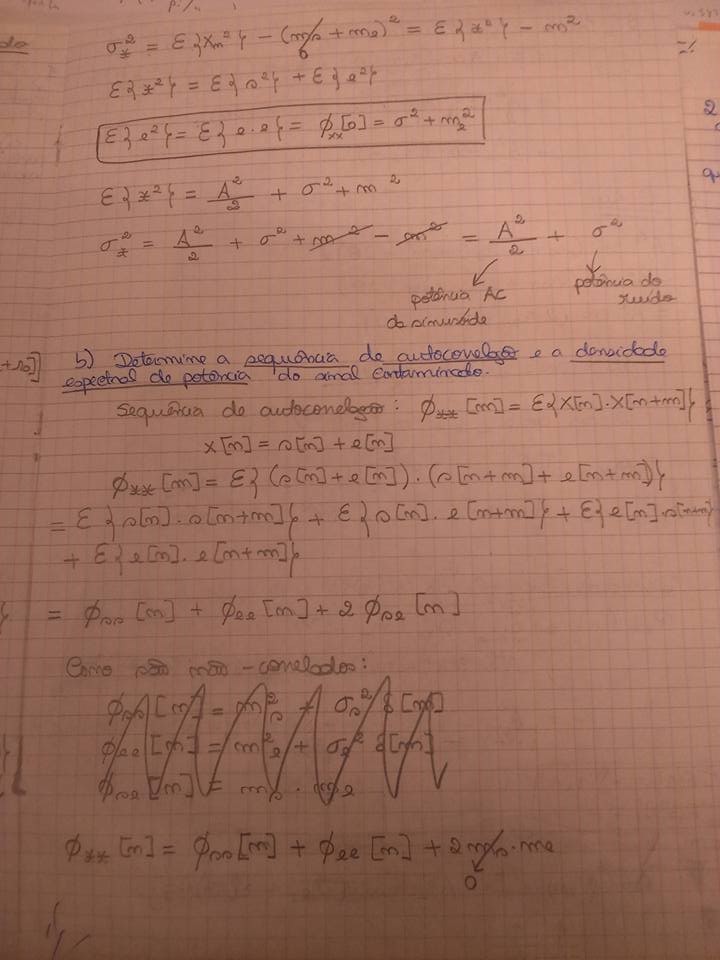 σx² = E{xn²} - (ms + me)² = E{x²} - m²
0
E{x²} = E{s²} + E{e²}
E{e²} = E{e·e} = ϕxx[0] = σ² + me²
E{x²} = A²/2 + σ² + m²
σx² = A²/2 + σ² + m² - m² = A²/2 + σ²
potência AC da sinusóide
potência do ruído
b) Determine a sequência de autocorrelação e a densidade
espectral de potência do sinal contaminado.
Sequência de autocorrelação: ϕxx[m] = E{x[n]·x[n+m]}
x[n] = s[n] + e[n]
ϕxx[m] = E{(s[n] + e[n])·(s[n+m] + e[n+m])}
= E{s[n]·s[n+m]} + E{s[n]·e[n+m]} + E{e[n]·s[n+m]}
+ E{e[n]·e[n+m]}
= ϕss[m] + ϕee[m] + 2ϕse[m]
Como são não-correlados:
ϕss[m] = ms² + σs² δ[m]
ϕee[m] = me² + σe² δ[m]
ϕse[m] = ms·me
ϕxx[m] = ϕss[m] + ϕee[m] + 2ms·me
0